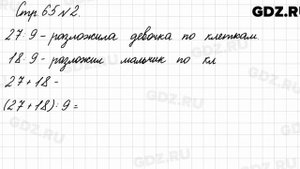 Стр. 65 №2.
GDZ.RU
27:9 - разложила девочка по клеткам.
18:9 - разложил мальчик по кл
27+18 -
(27+18):9=